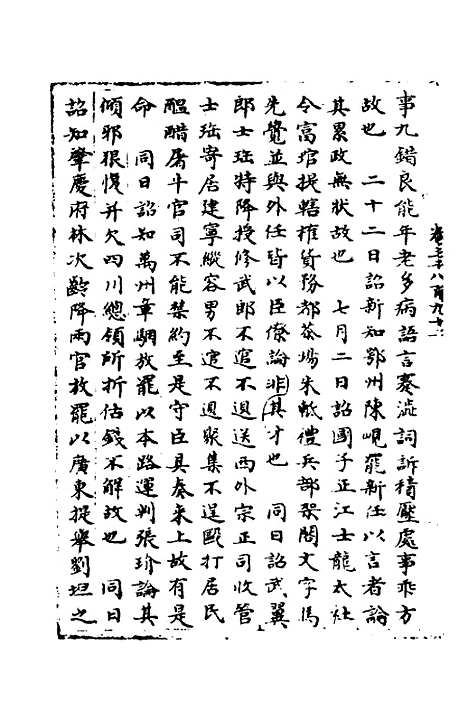 事九錯良能年老多病語言蹇澁詞訴積壓處事乖方
故也　二十二日詔新知鄂州陳峴罷新任以言者論
其累政無狀故也　七月二日詔國子正江士龍太社
令富琯提轄榷貨務都茶場朱軧禮兵部架閣文字馬
先覺並與外任皆以臣僚論非其才也　同日詔武翼
郎士㻇特降授修武郎不𢙇不退送西外宗正司收管
士㻇寄居建寧縱容男不𢙇不退聚集不逞毆打居民
醞醋屠牛官司不能禁約至是守臣具奏來上故有是
命　同日詔知萬州章駉放罷以本路運判張玠論其
傾邪狠愎并欠四川總領所折估錢不解故也　同日
詔知肇慶府林次齡降兩官放罷以廣東提舉劉坦之